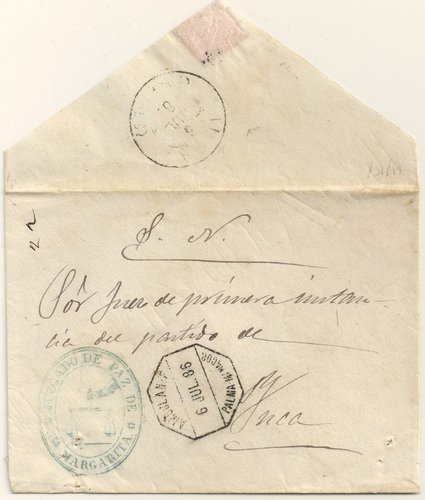 S. N.
Sór Juez de primera instan-
cia del partido de
Inca
JUZGADO DE PAZ DE
MARGARITA.
AMBULANTE
6 JUL. 86
PALMA MANACOR